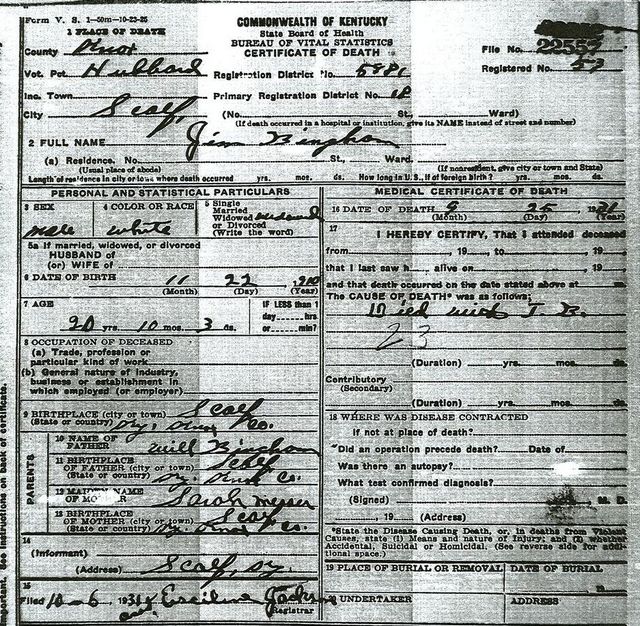 Form V. S. 1—50m—10-23-25
1 PLACE OF DEATH
County Knox
Vot. Pct. Hubbard
Inc. Town
City Scalf,
COMMONWEALTH OF KENTUCKY
State Board of Health
BUREAU OF VITAL STATISTICS
CERTIFICATE OF DEATH
Registration District No. 5881
Primary Registration District No.
File No. 22557
Registered No. 57
(No. St., Ward)
(If death occurred in a hospital or institution, give its NAME instead of street and number)
2 FULL NAME Jim Bingham
(a) Residence. No. St., Ward.
(Usual place of abode) (If nonresident, give city or town and State)
Length of residence in city or town where death occurred yrs. mos. ds. How long in U. S., if of foreign birth? yrs. mos. ds.
PERSONAL AND STATISTICAL PARTICULARS
3 SEX male
4 COLOR OR RACE white
5 Single
Married
Widowed
or Divorced
(Write the word)
5a If married, widowed, or divorced
HUSBAND of
(or) WIFE of
6 DATE OF BIRTH 11 22
(Month) (Day) (Year)
7 AGE
20 yrs. 10 mos. 3 ds.
IF LESS than 1
day hrs
or min?
8 OCCUPATION OF DECEASED
(a) Trade, profession or
particular kind of work
(b) General nature of industry,
business or establishment in
which employed (or employer)
9 BIRTHPLACE (city or town) Scalf
(State or country) Ky. Knox Co.
PARENTS
10 NAME OF
FATHER Will Bingham
11 BIRTHPLACE
OF FATHER (city or town) Scalf
(State or country) Ky. Knox Co.
12 MAIDEN NAME
OF MOTHER Sarah Messer
13 BIRTHPLACE
OF MOTHER (city or town) Scalf
(State or country) Ky. Knox Co.
14
(Informant)
(Address) Scalf, Ky.
15
Filed 10-6, 1931 Jackson
Registrar
MEDICAL CERTIFICATE OF DEATH
16 DATE OF DEATH 9 25, 1931
(Month) (Day) (Year)
17
I HEREBY CERTIFY, That I attended deceased
from , 19 , to , 19
that I last saw h alive on , 19
and that death occurred on the date stated above at m.
The CAUSE OF DEATH* was as follows:
Died with T. B.
23
(Duration) yrs. mos. ds.
Contributory
(Secondary)
(Duration) yrs. mos. ds.
18 WHERE WAS DISEASE CONTRACTED
if not at place of death?
Did an operation precede death? Date of
Was there an autopsy?
What test confirmed diagnosis?
(Signed) M. D.
19 (Address)
*State the Disease Causing Death, or, in deaths from Violent
Causes, state (1) Means and nature of Injury; and (2) whether
Accidental, Suicidal or Homicidal. (See reverse side for addi-
tional space.)
19 PLACE OF BURIAL OR REMOVAL
DATE OF BURIAL
UNDERTAKER
ADDRESS
important. See instructions on back of certificate.